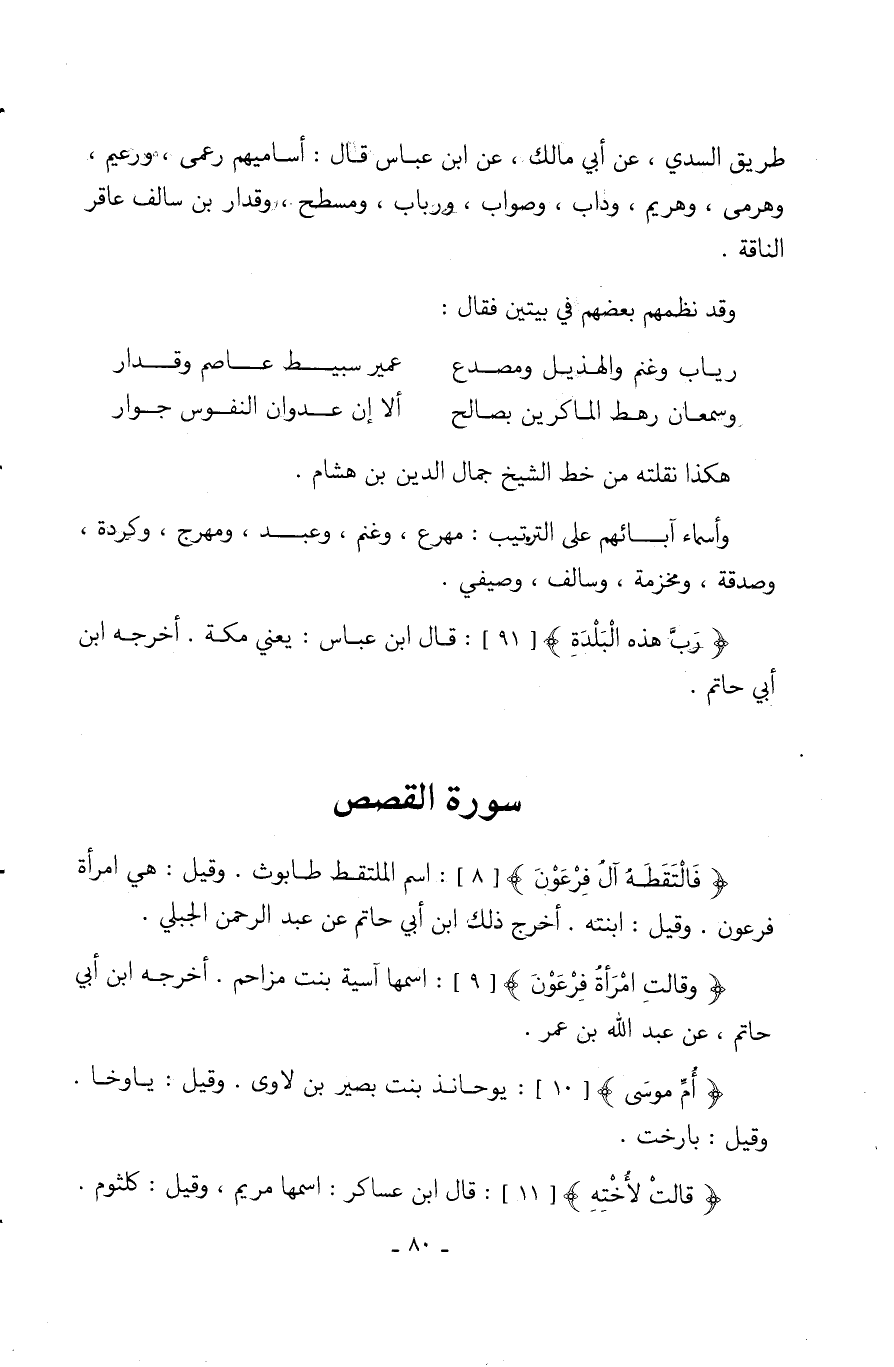 طريق السدي ، عن أبي مالك ، عن ابن عباس قال : أساميهم رعمى ، ورعيم ،
وهرمى ، وهريم ، وداب ، وصواب ، ورباب ، ومسطح ، وقدار بن سالف عاقر
الناقة .
وقد نظمهم بعضهم في بيتين فقال :
رياب وغنم والهذيل ومصدع عمير سبيط عاصم وقدار
وسمعان رهط الماكرين بصالح ألا إن عدوان النفوس جوار
هكذا نقلته من خط الشيخ جمال الدين بن هشام .
وأسماء آبائهم على الترتيب : مهرع ، وغنم ، وعبد ، ومهرج ، وكردة ،
وصدقة ، ومخزمة ، وسالف ، وصيفي .
﴿ رَبَّ هذه الْبَلْدَةِ ﴾ [ ٩١ ] : قال ابن عباس : يعني مكة . أخرجه ابن
أبي حاتم .
سورة القصص
﴿ فَالْتَقَطَهُ آلُ فِرْعَوْنَ ﴾ [ ٨ ] : اسم الملتقط طابوث . وقيل : هي امرأة
فرعون . وقيل : ابنته . أخرج ذلك ابن أبي حاتم عن عبد الرحمن الجبلي .
﴿ وقالتِ امْرَأةُ فِرْعَوْنَ ﴾ [ ٩ ] : اسمها آسية بنت مزاحم . أخرجه ابن أبي
حاتم ، عن عبد الله بن عمر .
﴿ أُمِّ موسَى ﴾ [ ١٠ ] : يوحانذ بنت بصير بن لاوى . وقيل : ياوخا .
وقيل : بارخت .
﴿ قالتْ لأُخْتِهِ ﴾ [ ١١ ] : قال ابن عساكر : اسمها مريم ، وقيل : كلثوم .
- ٨٠ -